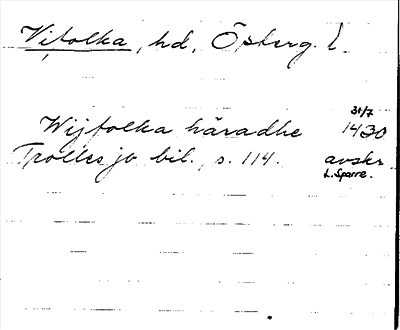 Vifolka, hd, Österg. l.
31/7
Wijfolka häradhe 1430
Trolles jb bil. s. 114. avskr.
L. Sparre.